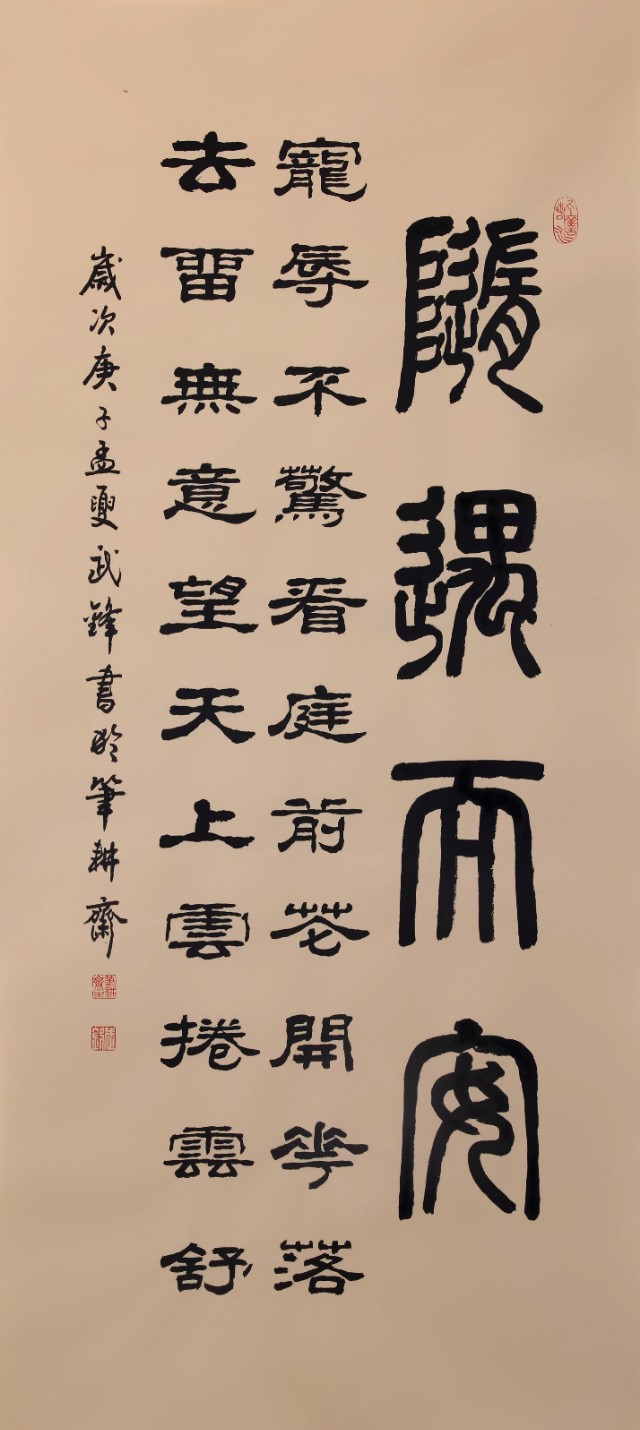 隨遇而安
寵辱不驚看庭前花開花落
去留無意望天上雲捲雲舒
歲次庚子孟夏武鋒書於筆耕齋